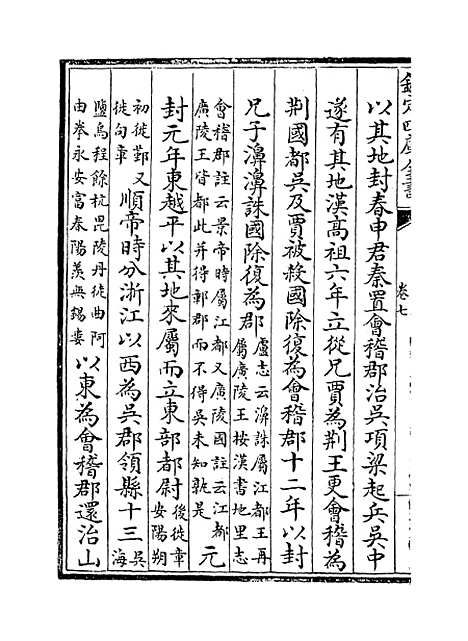 欽定四庫全書
卷七
以其地封春申君秦置會稽郡治吳項梁起兵吳中
遂有其地漢高祖六年立從兄賈為荆王更會稽為
荆國都吳及賈被殺國除復為會稽郡十二年以封
兄子濞濞誅國除復為郡盧志云濞誅屬江都王再屬廣陵王按漢書地里志
會稽郡註云景帝時屬江都又廣陵國註云江都廣陵王皆都此并得鄣郡而不得吳未知孰是元
封元年東越平以其地來屬而立東部都尉後徙章安陽朔
初徙鄞又徙句章順帝時分浙江以西為吳郡領縣十三吳海
鹽烏程餘杭毘陵丹徒曲阿由拳永安富春陽羡無錫婁以東為會稽郡還治山